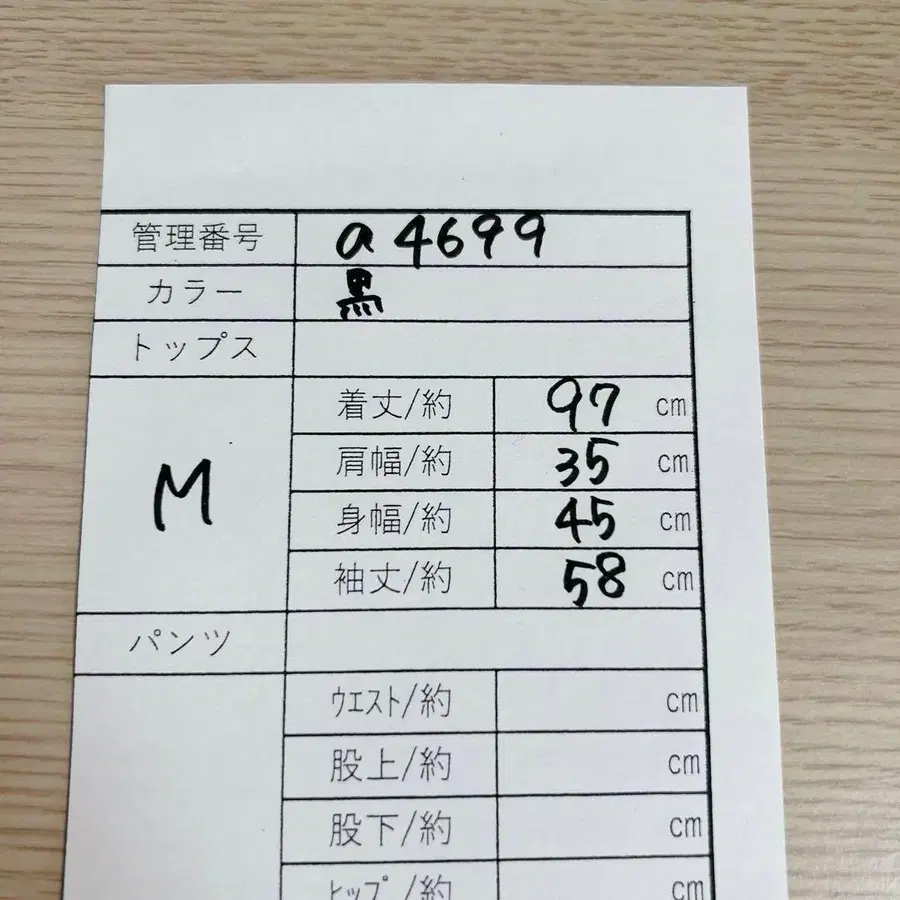 管理番号 a4699
カラー 黒
トップス
M
着丈/約 97 cm
肩幅/約 35 cm
身幅/約 45 cm
袖丈/約 58 cm
パンツ
ｳｴｽﾄ/約 cm
股上/約 cm
股下/約 cm
ﾋｯﾌﾟ/約 cm